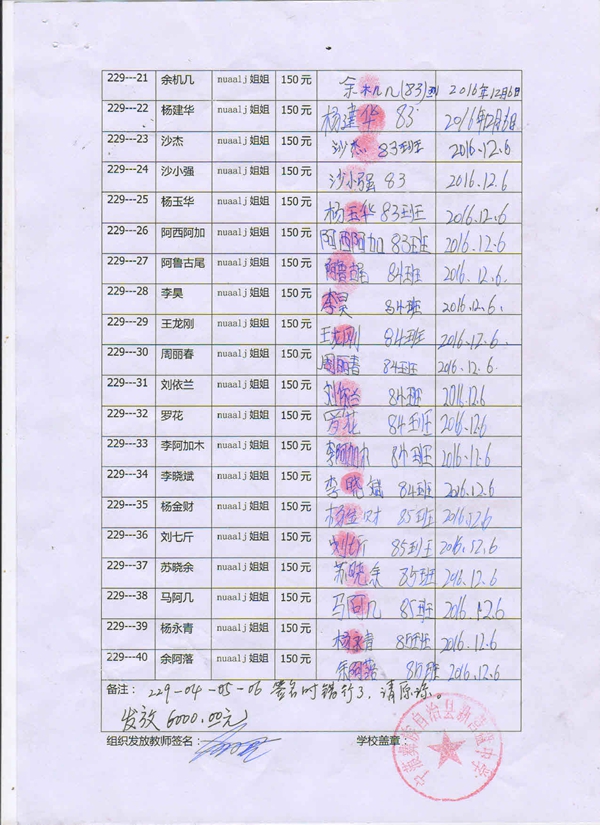 229---21 余机几 nuaalj姐姐 150元 余机几(83) 2016年12月6日
229---22 杨建华 nuaalj姐姐 150元 杨建华 83 2016年12月6日
229---23 沙杰 nuaalj姐姐 150元 沙杰 83班 2016.12.6
229---24 沙小强 nuaalj姐姐 150元 沙小强 83 2016.12.6
229---25 杨玉华 nuaalj姐姐 150元 杨玉华 83班 2016.12.6
229---26 阿西阿加 nuaalj姐姐 150元 阿西阿加 83班 2016.12.6
229---27 阿鲁古尾 nuaalj姐姐 150元 阿鲁古尾 84班 2016.12.6
229---28 李昊 nuaalj姐姐 150元 李昊 84班 2016.12.6
229---29 王龙刚 nuaalj姐姐 150元 王龙刚 84班 2016.12.6
229---30 周丽春 nuaalj姐姐 150元 周丽春 84班 2016.12.6
229---31 刘依兰 nuaalj姐姐 150元 刘依兰 84班 2016.12.6
229---32 罗花 nuaalj姐姐 150元 罗花 84班 2016.12.6
229---33 李阿加木 nuaalj姐姐 150元 李阿加木 84班 2016.12.6
229---34 李晓斌 nuaalj姐姐 150元 李晓斌 84班 2016.12.6
229---35 杨金财 nuaalj姐姐 150元 杨金财 85班 2016.12.6
229---36 刘七斤 nuaalj姐姐 150元 刘七斤 85班 2016.12.6
229---37 苏晓余 nuaalj姐姐 150元 苏晓余 85班 2016.12.6
229---38 马阿几 nuaalj姐姐 150元 马阿几 85班 2016.12.6
229---39 杨永青 nuaalj姐姐 150元 杨永青 85班 2016.12.6
229---40 余阿落 nuaalj姐姐 150元 余阿落 85班 2016.12.6
备注： 229-04-05-06 签名时错行了,请原谅。
发放(6000.00元)
组织发放教师签名： 学校盖章：
宁蒗彝族自治县新营盘中学